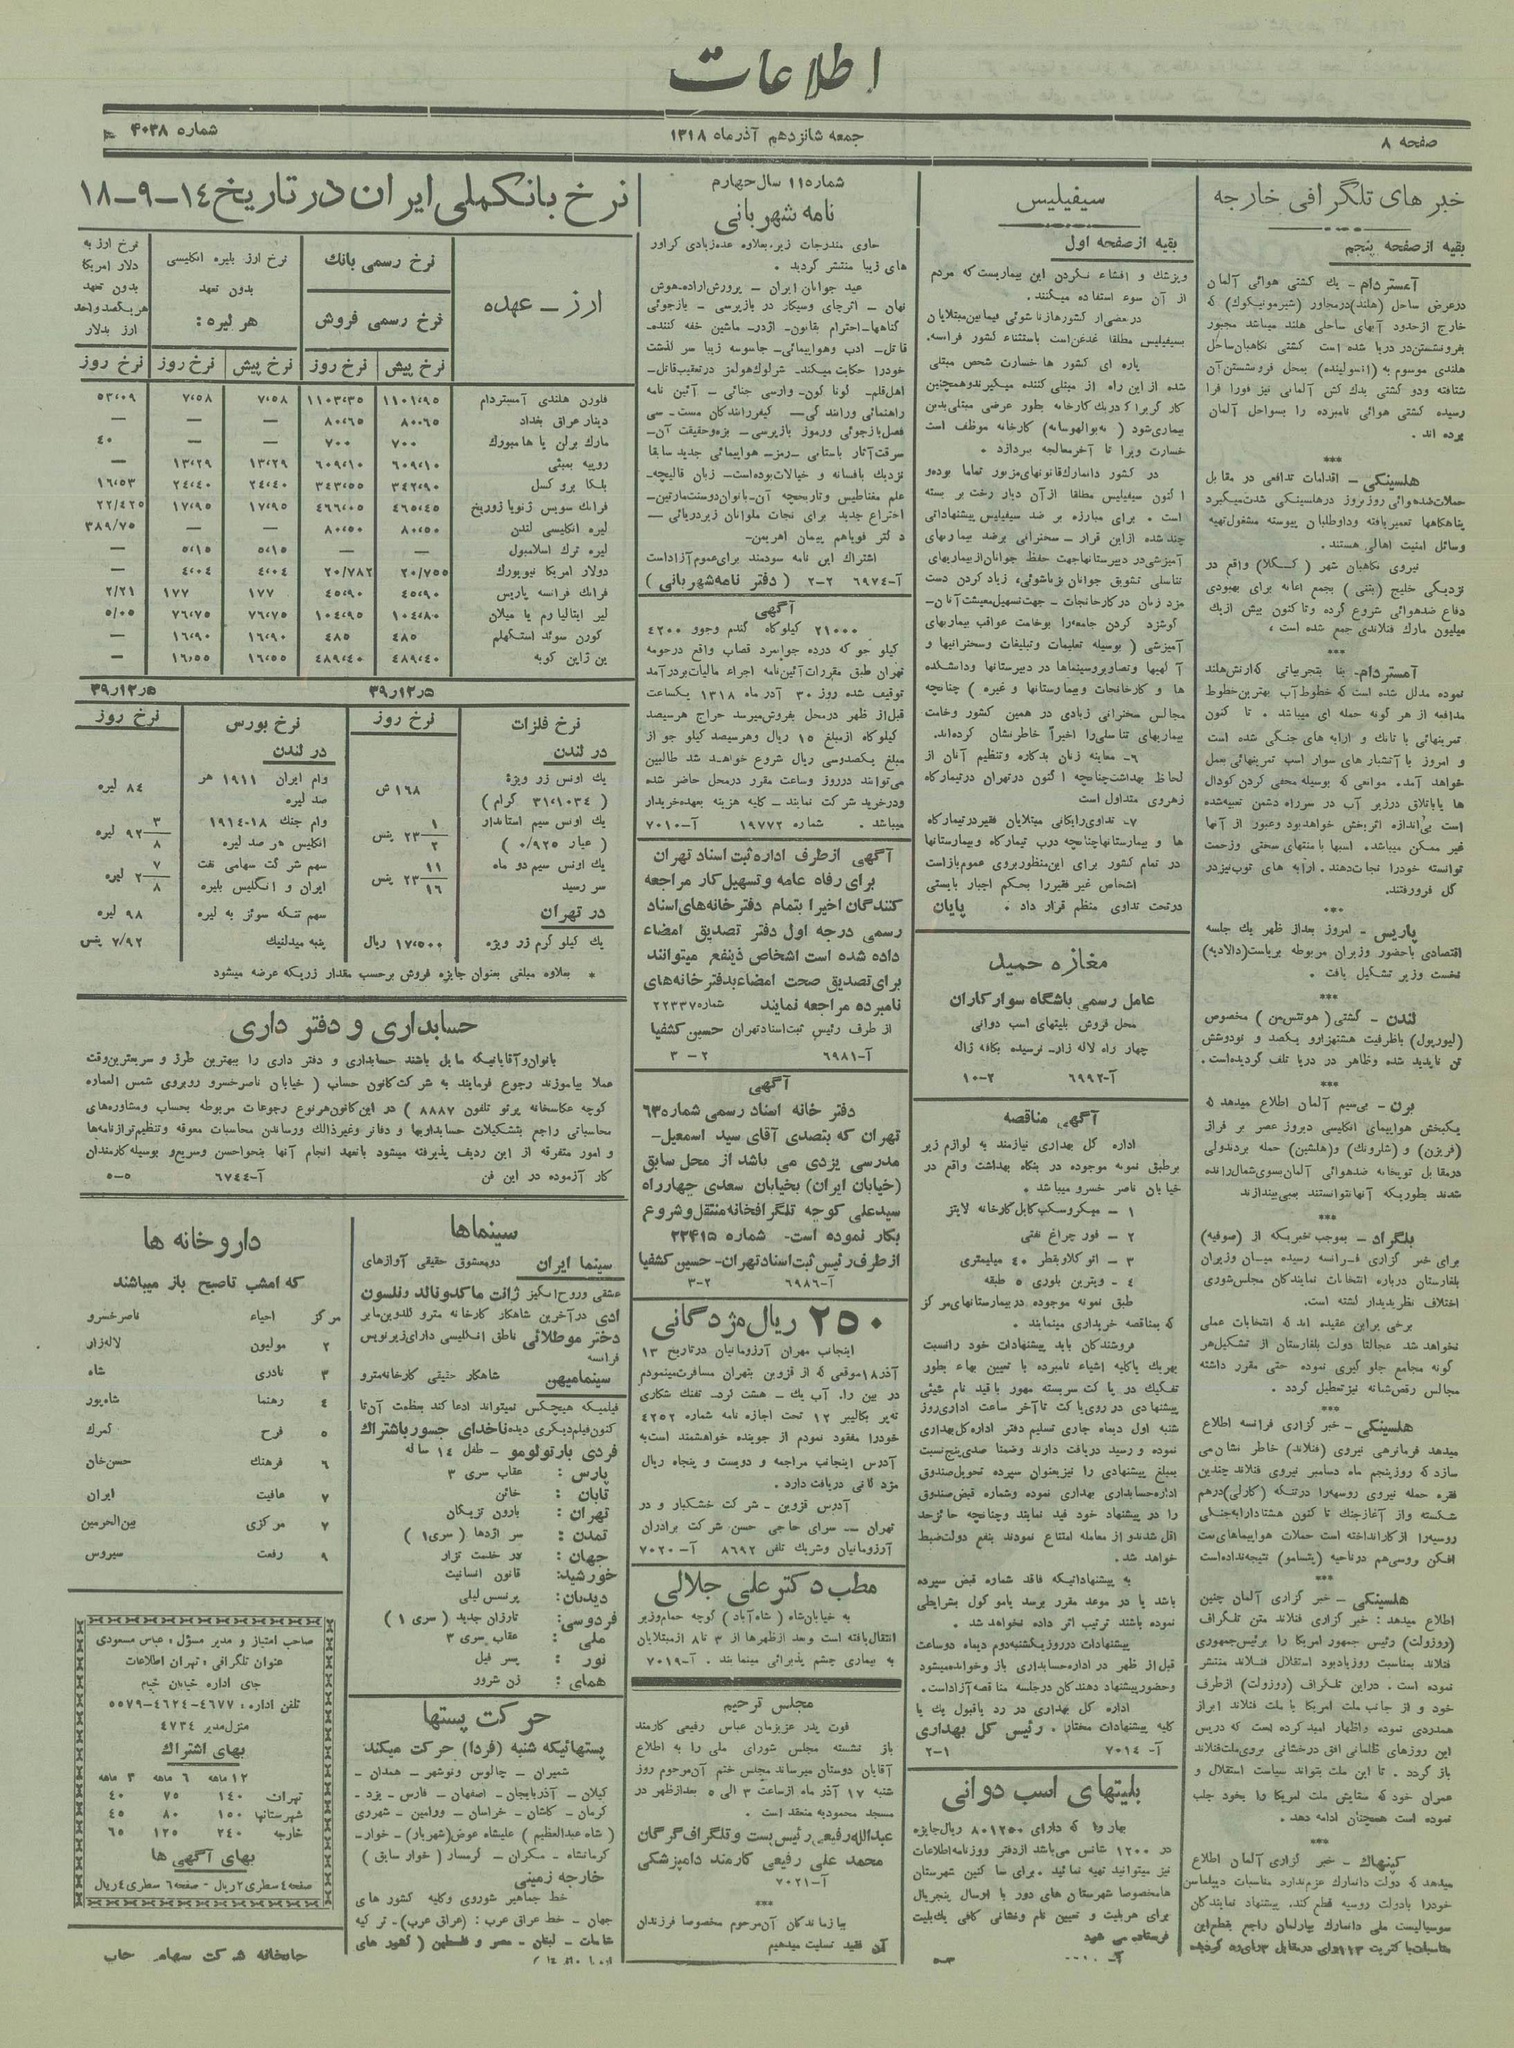 اطلاعات
صفحه ۸
جمعه شانزدهم آذر ماه ۱۳۱۸
شماره ۴۰۳۸
خبرهای تلگرافی خارجه
بقیه از صفحه پنجم
آمستردام - یك کشتی هوائی آلمان
درعرض ساحل (هلند) درمجاور (شیرمونیکوك) که
خارج از حدود آبهای ساحلی هلند میباشد مجبور
بفرونشستن در دریا شده است کشتی نگاهبان ساحل
شتافته ودو کشتی یدك کش آلمانی نیز فورا فرا
رسیده کشتی هوائی نامبرده را بسواحل آلمان
برده اند .
***
هلسینکی - اقدامات تدافعی در مقابل
حملات ضدهوائی روز بروز در هلسینکی شدت میگیرد
پناهگاهها تعمیر یافته وداوطلبان پیوسته مشغول تهیه
وسائل امنیت اهالی هستند .
دفاع ضدهوائی شروع کرده وتا کنون بیش از یك
میلیون مارك فنلاندی جمع شده است .
***
آمستردام - بنا بتجربیاتی که ارتش هلند
نموده مدلل شده است که خطوط آب بهترین خطوط
مدافعه از هر گونه حمله ای میباشد . تا کنون
تمرینهائی با تانك و ارابه های جنگی شده است
و امروز با آتشبار های سوار اسب تمرینهائی بعمل
خواهد آمد . موانعی که بوسیله مخفی کردن گودال
ها یا باتلاق در زیر آب در سرراه دشمن تعبیه شده
است بی اندازه اثر بخش خواهد بود وعبور از آنها
غیر ممکن میباشد . اسبها با منتهای سختی وزحمت
توانسته خود را نجات دهند . ارابه های توپ نیز در
گل فرورفتند .
***
پاریس - امروز بعد از ظهر یك جلسه
اقتصادی با حضور وزیران مربوطه بریاست (دالادیه)
نخست وزیر تشکیل یافت .
***
لندن - کشتی ( هوتتس من ) مخصوص
(لیورپول) باظرفیت هشتهزارو یکصد و نودوشش
تن ناپدید شده وظاهر در دریا تلف گردیده است .
***
برن - بی سیم آلمان اطلاع میدهد که
یکبخش هواپیمای انگلیسی دیروز عصر بر فراز
درمقابل توپخانه ضدهوائی آلمان بسوی شمال رانده
شدند بطوریکه آنها نتوانستند بمبی بیندازند
***
بلگراد - بموجب خبریکه از (صوفیه)
برای خبر گزاری فرانسه رسیده میان وزیران
بلغارستان درباره انتخابات نمایندگان مجلس شوری
اختلاف نظر پدیدار گشته است .
برخی براین عقیده اند که انتخابات عملی
نخواهد شد . عجالتا دولت بلغارستان از تشکیل هر
گونه مجامع جلو گیری نموده حتی مقرر داشته
مجالس رقص شانه نیز تعطیل گردد .
***
هلسینکی - خبر گزاری فرانسه اطلاع
میدهد فرماندهی نیروی (فنلاند) خاطر نشان می
سازد که روز پنجم ماه دسامبر نیروی فنلاند چندین
فقره حمله نیروی روسیه را در تنگه (کارلی) درهم
شکسته و از آغاز جنك تا کنون هشتاد ارابه جنگی
روسیه را از کار انداخته است حملات هواپیماهای بمب
افکن روسی هم در ناحیه (پتسامو) نتیجه نداده است
***
هلسینکی - خبر گزاری آلمان چنین
اطلاع میدهد : خبر گزاری فنلاند متن تلگراف
(روزولت) رئیس جمهور امریکا را برئیس جمهوری
فنلاند بمناسبت روز یادبود استقلال فنلاند منتشر
نموده است . دراین تلگراف (روزولت) از طرف
خود و از جانب ملت امریکا با ملت فنلاند ابراز
همدردی نموده واظهار امید کرده است که در پس
این روزهای ظلمانی افق درخشانی بروی ملت فنلاند
باز گردد . تا این ملت بتواند سیاست استقلال و
عمران خود که ستایش ملت امریکا را بخود جلب
نموده است همچنان ادامه دهد .
***
کپنهاك - خبر گزاری آلمان اطلاع
میدهد که دولت دانمارك عزم ندارد مناسبات دیپلماسی
خود را با دولت روسیه قطع کند . پیشنهاد نمایندگان
سوسیالیست ملی دانمارك بپارلمان راجع بقطع این
سیفیلیس
بقیه از صفحه اول
وپزشك و افشاء نکردن این بیماریست که مردم
از آن سوء استفاده میکنند .
در بعضی از کشورها زناشوئی فیمابین مبتلایان
بسیفیلیس مطلقا غدغن است باستثناء کشور فرانسه .
پاره ای کشور ها خسارت شخص مبتلی
شده از این راه از مبتلی کننده میگیرند وهمچنین
کار گر را که در یك کارخانه بطور عرضی مبتلی بدین
خسارت ویرا تا آخر معالجه بپردازد .
در کشور دانمارك قانونهای مزبور تماما بوده و
اکنون سیفیلیس مطلقا از آن دیار رخت بر بسته
است . برای مبارزه بر ضد سیفیلیس پیشنهاداتی
چند شده از این قرار - سخنرانی برضد بیماریهای
آمیزشی در دبیرستانها جهت حفظ جوانان از بیماریهای
تناسلی تشویق جوانان بزناشوئی ، زیاد کردن دست
مزد زنان در کارخانجات - جهت تسهیل معیشت آنان -
گوشزد کردن جامعه را بوخامت عواقب بیماریهای
آمیزشی ( بوسیله تعلیمات وتبلیغات وسخنرانیها و
آگهیها وتصاویر وسینماها در دبیرستانها ودانشکده
ها و کارخانجات وبیمارستانها و غیره ) چنانچه
مجالس سخنرانی زیادی در همین کشور وخامت
بیماریهای تناسلی را اخیراً خاطر نشان کرده اند .
۶- معاینه زنان بدکاره وتنظیم آنان از
لحاظ بهداشت چنانچه اکنون در تهران در تیمارگاه
زهروی متداول است
۷- تداوی رایگانی مبتلایان فقیر در تیمارگاه
ها و بیمارستانها چنانچه درب تیمارگاه وبیمارستانها
در تمام کشور برای این منظور بروی عموم باز است
اشخاص غیر فقیر را بحکم اجبار بایستی
درتحت تداوی منظم قرار داد . پایان
مغازه حمید
عامل رسمی باشگاه سوارکاران
محل فروش بلیتهای اسب دوانی
چهار راه لاله زار - نرسیده بکافه ژاله
آ-۶۹۹۲ ۲-۱۰
آگهی مناقصه
اداره کل بهداری نیازمند به لوازم زیر
برطبق نمونه موجوده در بنگاه بهداشت واقع در
خیابان ناصر خسرو میباشد .
۱ - میکروسکپ کابل کارخانه لایتز
۲ - فور چراغ نفتی
۳ - اتو کلاو بقطر ۴۰ میلیمتری
۴ - ویترین بلوری ۵ طبقه
طبق نمونه موجوده در بیمارستانهای مرکز
که بمناقصه خریداری مینمایند .
فروشندگان باید پیشنهادات خود را نسبت
بهر یك یا کلیه اشیاء نامبرده با تعیین بهاء بطور
تفکیك در پا کت سربسته ممهور با قید نام شیئی
پیشنهادی در روی پا کت تا آخر ساعت اداری روز
شنبه اول دیماه جاری تسلیم دفتر اداره کل بهداری
نموده و رسید دریافت دارند وضمنا صدی پنج نسبت
بمبلغ پیشنهادی را نیز بعنوان سپرده تحویل صندوق
اداره حسابداری بهداری نموده وشماره قبض صندوق
را در پیشنهاد خود قید نمایند وچنانچه حائز حد
اقل شدند و از معامله امتناع نمودند بنفع دولت ضبط
خواهد شد .
به پیشنهاداتیکه فاقد شماره قبض سپرده
باشد یا در موعد مقرر نرسد یا موکول بشرایطی
نموده باشند ترتیب اثر داده نخواهد شد .
پیشنهادات در روز یکشنبه دوم دیماه دو ساعت
قبل از ظهر در اداره حسابداری باز وخوانده میشود
وحضور پیشنهاد دهندگان در جلسه مناقصه آزاد است .
اداره کل بهداری در رد یا قبول یك یا
کلیه پیشنهادات مختار . رئیس کل بهداری
آ- ۷۰۱۴ ۱-۲
بلیتهای اسب دوانی
بهار را که دارای ۸۰۱۲۵۰ ریال جایزه
در ۱۲۰۰ شانس می باشد از دفتر روزنامه اطلاعات
نیز میتوانید تهیه نمائید . برای سا کنین شهرستان
ها مخصوصا شهرستان های دور با ارسال پنج ریال
برای هر بلیت و تعیین نام ونشانی کافی یك بلیت
فرستاده می شود
شماره ۱۱ سال چهارم
نامه شهربانی
حاوی مندرجات زیر . بعلاوه عده زیادی گراور
های زیبا منتشر گردید .
عید جوانان ایران - پرورش اراده - هوش
نهان - اثر چای وسیگار در بازپرسی - بازجوئی
گناهها - احترام بقانون - اژدر - ماشین خفه کننده -
قاتل - ادب وهواپیمائی - جاسوسه زیبا سر گذشت
خود را حکایت میکند - شرلوك هولمز در تعقیب قاتل -
راهنمائی ورانندگی - کیفر رانندگان مست - سی
فصل بازجوئی ورموز بازپرسی - بزه وحقیقت آن -
سرقت آثار باستانی - رمز - هواپیمائی جدید سابقا
نزدیك بافسانه و خیالات بوده است - زبان قالیچه -
علم مغناطیس وتاریخچه آن - بانوان دوست مارتین -
اختراع جدید برای نجات ملوانان زیردریائی -
دکتر فویاهم پیمان اهریمن -
اشتراك این نامه سودمند برای عموم آزاد است
آ-۶۹۷۴ ۲-۲ ( دفتر نامه شهربانی )
آگهی
۲۱۰۰۰ کیلو کاه گندم وجوو ۴۲۰۰
کیلو جو که درده جوانمرد قصاب واقع در حومه
تهران طبق مقررات آئین نامه اجراء مالیات بردرآمد
توقیف شده روز ۳۰ آذر ماه ۱۳۱۸ یکساعت
قبل از ظهر در محل بفروش میرسد حراج هر سیصد
کیلو کاه از مبلغ ۱۵ ریال وهر سیصد کیلو جو از
مبلغ یکصدوسی ریال شروع خواهد شد طالبین
می توانند در روز وساعت مقرر در محل حاضر شده
ودر خرید شر کت نمایند - کلیه هزینه بعهده خریدار
میباشد . شماره ۱۹۷۷۲ آ-۷۰۱۰
آگهی از طرف اداره ثبت اسناد تهران
برای رفاه عامه وتسهیل کار مراجعه
کنندگان اخیرا بتمام دفتر خانه های اسناد
رسمی درجه اول دفتر تصدیق امضاء
داده شده است اشخاص ذینفع میتوانند
برای تصدیق صحت امضاء بدفتر خانه های
نامبرده مراجعه نمایند شماره ۲۲۳۳۷
از طرف رئیس ثبت اسناد تهران حسین کشفیا
آ-۶۹۸۱ ۲- ۳
آگهی
دفتر خانه اسناد رسمی شماره ۶۳
تهران که بتصدی آقای سید اسمعیل -
مدرسی یزدی می باشد از محل سابق
(خیابان ایران) بخیابان سعدی چهار راه
سیدعلی کوچه تلگرافخانه منتقل وشروع
بکار نموده است - شماره ۲۲۴۱۵
از طرف رئیس ثبت اسناد تهران - حسین کشفیا
آ-۶۹۸۶ ۲-۳
۲۵۰ ریال مژدگانی
اینجانب مهران آرزومانیان در تاریخ ۱۳
آذر ۱۸ موقعی که از قزوین بتهران مسافرت مینمودم
در بین راه . آب یك - هشت گرد - تفنك شکاری
ته پر بکالیبر ۱۲ تحت اجازه نامه شماره ۴۲۵۲
خود را مفقود نمودم از جوینده خواهشمند است به
آدرس اینجانب مراجعه و دویست و پنجاه ریال
مژدگانی دریافت دارد .
آدرس قزوین - شر کت خشکبار و در
تهران - سرای حاجی حسن شر کت برادران
آرزومانیان وشریك تلفن ۸۶۹۲ آ-۷۰۲۰
مطب دکتر علی جلالی
به خیابان شاه ( شاه آباد ) کوچه حمام وزیر
انتقال یافته است وبعد از ظهرها از ۳ تا ۸ از مبتلایان
به بیماری چشم پذیرائی مینمایند . آ-۷۰۱۹
مجلس ترحیم
فوت پدر عزیزمان عباس رفیعی کارمند
باز نشسته مجلس شورای ملی را به اطلاع
آقایان دوستان میرساند مجلس ختم آن مرحوم روز
شنبه ۱۷ آذر ماه از ساعت ۳ الی ۵ بعد از ظهر در
مسجد محمودیه منعقد است .
عبدالله رفیعی رئیس پست و تلگراف گرگان
محمد علی رفیعی کارمند دامپزشکی
آ-۷۰۲۱
***
ببازماندگان آن مرحوم مخصوصا فرزندان
آن فقید تسلیت میدهیم
نرخ بانکملی ایران در تاریخ ۱۴-۹-۱۸
ارز - عهده
نرخ رسمی بانك
نرخ رسمی فروش
نرخ ارز بلیره انگلیسی بدون تعهد هر لیره :
نرخ ارز به دلار امریکا بدون تعهد هر یکصد واحد ارز بدلار
نرخ پیش نرخ روز نرخ پیش نرخ روز نرخ روز
فلورن هلندی آمستردام ۱۱۰۱،۹۵ ۱۱۰۳،۳۵ ۷،۵۸ ۷،۵۸ ۵۳،۰۹
دینار عراقی بغداد ۸۰،۶۵ ۸۰،۶۵ — — —
مارك برلن یا هامبورك ۷۰۰ ۷۰۰ — — ۴۰
روپیه بمبئی ۶۰۹،۱۰ ۶۰۹،۱۰ ۱۳،۲۹ ۱۳،۲۹ —
بلگا برو کسل ۳۴۲،۹۰ ۳۴۳،۵۵ ۲۴،۴۰ ۲۴،۴۰ ۱۶،۵۳
فرانك سویس ژنویا زوریخ ۴۶۵،۴۵ ۴۶۶،۰۵ ۱۷،۹۵ ۱۷،۹۵ ۲۲/۴۲۵
لیره انگلیسی لندن ۸۰،۵۰ ۸۰،۵۰ — — ۳۸۹/۷۵
لیره ترك اسلامبول — — ۵،۱۵ ۵،۱۵ —
دولار امریکا نیویورك ۲۰/۷۵۵ ۲۰/۷۸۲ ۴،۰۴ ۴،۰۴ —
فرانك فرانسه پاریس ۴۵،۹۰ ۴۵،۹۰ ۱۷۷ ۱۷۷ ۲/۲۱
لیر ایتالیا رم یا میلان ۱۰۴،۸۰ ۱۰۴،۹۵ ۷۶،۷۵ ۷۶،۷۵ ۵/۰۵
کورن سوئد استکهلم ۴۸۵ ۴۸۵ ۱۶،۹۰ ۱۶،۹۰ —
ین ژاپن کوبه ۴۸۹،۴۰ ۴۸۹،۴۰ ۱۶،۵۵ ۱۶،۵۵ —
۵ر۱۲ر۳۹ ۵ر۱۲ر۳۹
نرخ فلزات نرخ روز
در لندن
یك اونس زر ویژه ۱۶۸ ش
( ۳۱،۱۰۳۴ گرام )
یك اونس سیم استاندار ۲۳ ۱/۲ پنس
( عیار ۰/۹۲۵ )
یك اونس سیم دو ماه ۲۳ ۱۱/۱۶ پنس
سر رسید
در تهران
یك کیلو گرم زر ویژه ۱۷،۵۰۰ ریال
نرخ بورس نرخ روز
در لندن
وام ایران ۱۹۱۱ هر ۸۴ لیره
صد لیره
وام جنك ۱۸-۱۹۱۴ ۹۲ ۳/۸ لیره
انگلیس هر صد لیره
سهم شر کت سهامی نفت ۲ ۷/۸ لیره
ایران و انگلیس بلیره
سهم تنگه سوئز به لیره ۹۸ لیره
پنبه میدلنیك ۷/۹۲ پنس
* بعلاوه مبلغی بعنوان جایزه فروش برحسب مقدار زریکه عرضه میشود
حسابداری و دفتر داری
بانوان وآقایانیکه مایل باشند حسابداری و دفتر داری را ببهترین طرز و سریعترین وقت
عملا بیاموزند رجوع فرمایند به شرکت کانون حساب ( خیابان ناصر خسرو روبروی شمس العماره
کوچه عکاسخانه پرتو تلفون ۸۸۸۷ ) در این کانون هر نوع رجوعات مربوطه بحساب ومشاوره های
محاسباتی راجع بتشکیلات حسابداریها و دفاتر وغیرذالك ورساندن محاسبات معوقه وتنظیم تراز نامه ها
و امور متفرقه از این ردیف پذیرفته میشود با تعهد انجام آنها بنحو احسن وسریع و بوسیله کارمندان
کار آزموده در این فن آ-۶۷۴۴ ۵-۵
سینماها
سینما ایران دو معشوق حقیقی آوازهای
عشقی وروح انگیز ژانت ماکدونالد ونلسون
ادی در آخرین شاهکار کارخانه مترو گلدوین مایر
دختر موطلائی ناطق انگلیسی دارای زیرنویس
فرانسه
سینما میهن شاهکار حقیقی کارخانه مترو
فیلمیکه هیچکس نمیتواند ادعا کند بعظمت آن تا
کنون فیلم دیگری دیده ناخدای جسور باشتراك
فردی بارتولومو - طفل ۱۴ ساله
پارس : عقاب سری ۳
تابان : خائن
تهران : بارون تزیگان
تمدن : سر اژدها ( سری ۱ )
جهان : در خدمت تزار
خورشید : قانون انسانیت
دیدبان : پرنسس لیلی
فردوسی : تارزان جدید ( سری ۱ )
ملی : عقاب سری ۳
نور : پسر فیل
همای : زن شرور
حرکت پستها
پستهائیکه شنبه (فردا) حرکت میکند
شمیران - چالوس ونوشهر - همدان -
گیلان - آذربایجان - اصفهان - فارس - یزد -
کرمان - کاشان - خراسان - ورامین - شهرری
( شاه عبدالعظیم ) علیشاه عوض (شهریار) - خوار -
کرمانشاه - مکران - گرمسار ( خوار سابق )
خارجه زمینی
خط جماهیر شوروی وکلیه کشور های
جهان - خط عراق عرب : (عراق عرب) - تر کیه
شامات - لبنان - مصر و فلسطین ( کشور های
داروخانه ها
که امشب تا صبح باز میباشند
مرکز احیاء ناصر خسرو
۲ مولیون لاله زار
۳ نادری شاه
۴ رهنما شاپور
۵ فرح گمرك
۶ فرهنك حسن خان
۷ عافیت ایران
۷ مرکزی بین الحرمین
۹ رفعت سیروس
صاحب امتیاز و مدیر مسؤل : عباس مسعودی
عنوان تلگرافی : تهران اطلاعات
جای اداره خیابان خیام
تلفن اداره : ۴۶۷۷-۴۶۲۴-۵۵۷۹
منزل مدیر ۴۷۳۴
بهای اشتراك
۱۲ ماهه ۶ ماهه ۳ ماهه
تهران ۱۴۰ ۷۵ ۴۰
شهرستانها ۱۵۰ ۸۰ ۴۵
خارجه ۲۴۰ ۱۲۵ ۶۵
بهای آگهی ها
صفحه ۴ سطری ۲ ریال - صفحه ۶ سطری ۴ ریال
چاپخانه شرکت سهامی چاپ